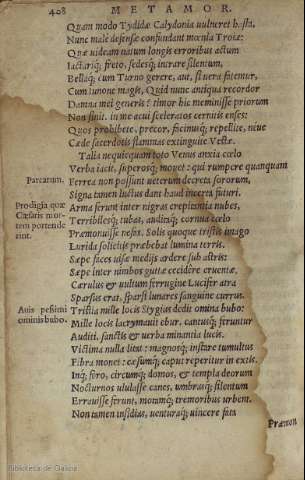 408 METAMOR.
Quam modo Tydidæ Calydonia vulneret hasta,
Nunc male defensæ confundant mœnia Troiæ:
Quæ videam natum longis erroribus actum
Iactariq; freto, sedesq; intrare silentum,
Bellaq; cum Turno gerere, aut, si vera fatemur,
Cum Iunone magis, Quid nunc antiqua recordor
Damna mei generis? timor hic meminisse priorum
Non sinit. in me acui sceleratos cernitis enses:
Quos prohibete, precor, facinusq; repellite, neue
Cæde sacerdotis flammas extinguite Vestæ.
Talia nequicquam toto Venus anxia cœlo
Verba iacit, superosq; mouet: qui rumpere quanquam
Parcarum.
Ferrea non possunt veterum decreta sororum,
Signa tamen luctus dant haud incerta futuri.
Prodigia quæ Cæsaris mortem portenderint.
Arma ferunt inter nigras crepitantia nubes,
Terribilesq; tubas, auditaq; cornua cœlo
Præmonuisse nefas. Solis quoque tristis imago
Lurida sollicitis præbebat lumina terris.
Sæpe faces visæ medijs ardere sub astris:
Sæpe inter nimbos guttæ cecidere cruentæ,
Cærulus & vultum ferrugine Lucifer atra
Sparsus erat, sparsi lunares sanguine currus.
Auis pessimi ominis bubo.
Tristia mille locis Stygius dedit omina bubo:
Mille locis lacrymauit ebur. cantusq; feruntur
Auditi, sanctis & verba minantia lucis.
Victima nulla litat: magnosq; instare tumultus
Fibra monet: cæsumq; caput reperitur in extis.
Inq; foro, circumq; domos, & templa deorum
Nocturnos vlulasse canes, vmbrasq; silentum
Errauisse ferunt, motamq; tremoribus vrbem.
Non tamen insidias, venturaq; vincere fata
Præmon
Biblioteca de Galicia